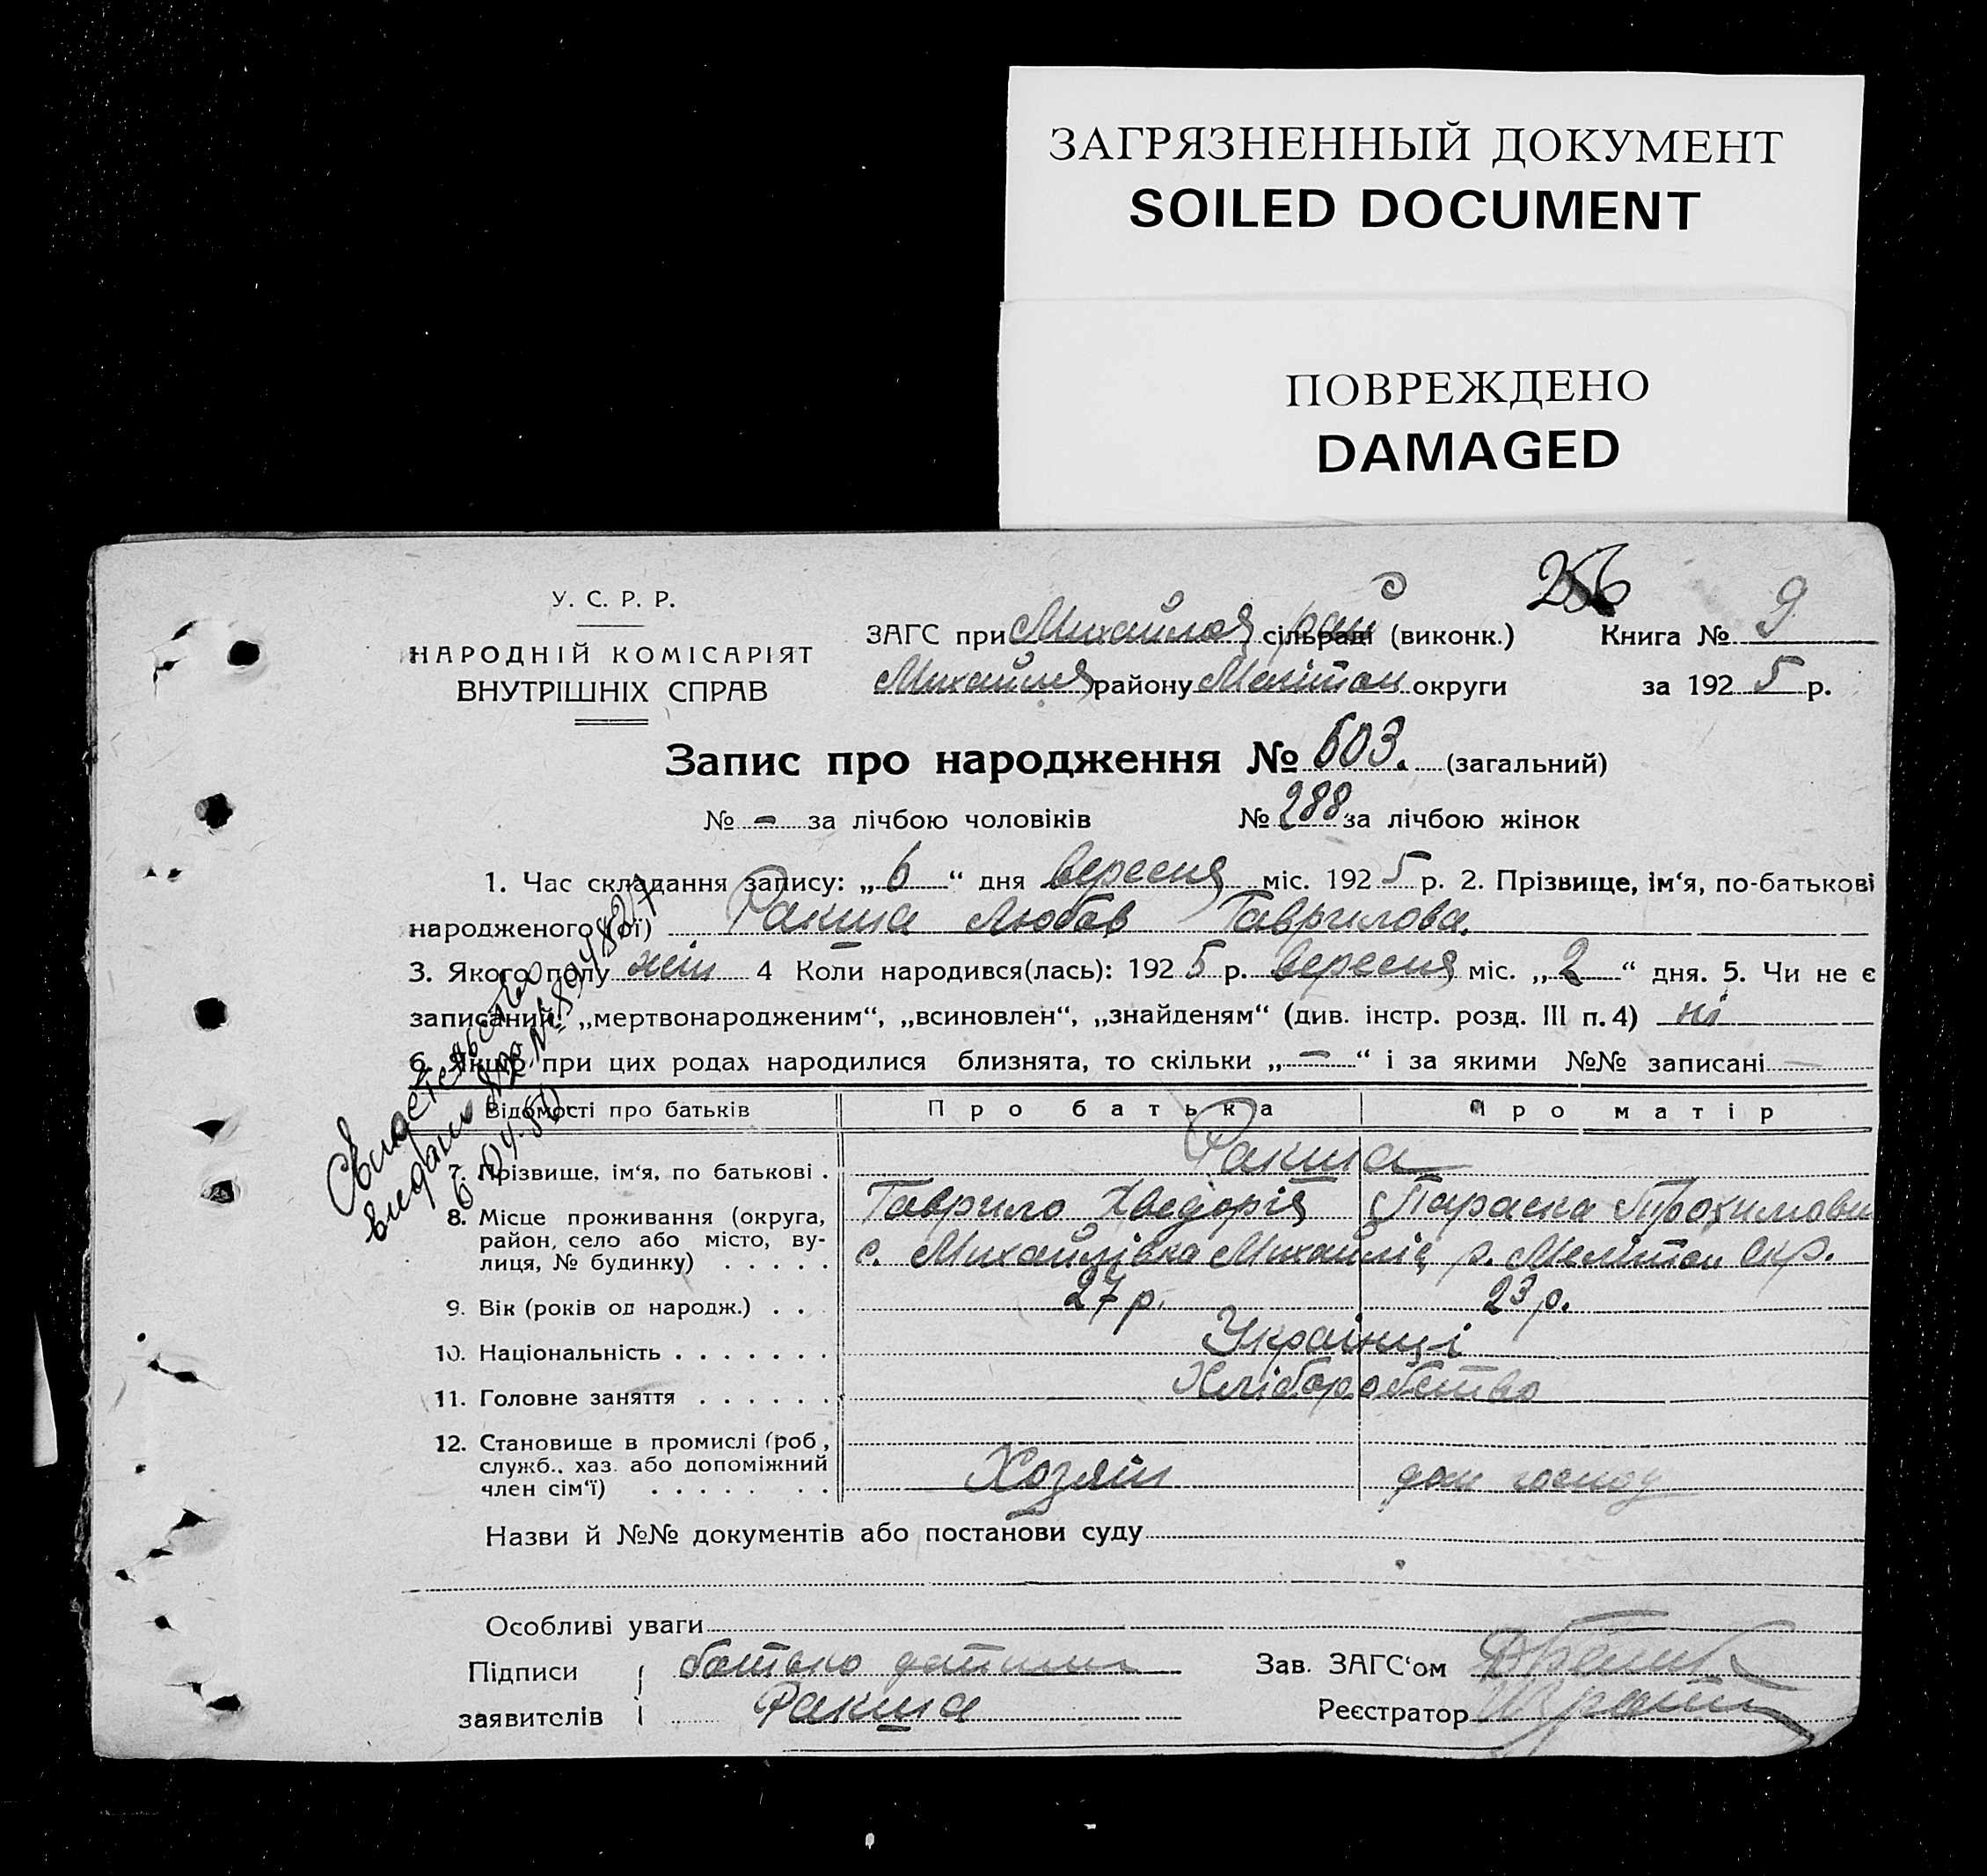 ЗАГРЯЗНЕННЫЙ ДОКУМЕНТ
SOILED DOCUMENT
ПОВРЕЖДЕНО
DAMAGED
У. С. Р. Р.
НАРОДНІЙ КОМІСАРІЯТ
ВНУТРІШНІХ СПРАВ
ЗАГС при Михайлов сільраді рай (виконк.) Книга № 9
Михайлів району Мелітоп округи за 1925 р.
Запис про народження № 603. (загальний)
№ - за лічбою чоловіків № 288 за лічбою жінок
1. Час складання запису: „6“ дня Вересня міс. 1925 р. 2. Прізвище, ім‘я, по-батькові
народженого (ої) Ракша Любов Гаврилова.
3. Якого полу жін 4 Коли народився(лась): 1925 р. Вересня міс. „2“ дня. 5. Чи не є
записаний: „мертвонародженим“, „всиновлен“, „знайденям“ (див. інстр. розд. III п. 4) ні
6. Якщо при цих родах народилися близнята, то скільки „—“ і за якими №№ записані
Відомості про батьків Про батька Про матір
7. Прізвище, ім‘я, по батькові . Ракша
Гаврило Хведорів Параска Трохимовн
8. Місце проживання (округа,
район, село або місто, ву-
лиця, № будинку) . . . . . с. Михайлівка Михайлів р. Мелітоп окр.
9. Вік (років од народж.) . . . 27 р. 23 р.
10. Національність . . . . . . . Українці
11. Головне заняття . . . . . . Хліборобство
12. Становище в промислі (роб.,
служб., хаз. або допоміжний
член сім‘ї) . . . . . . . Хозяїн дом господ
Назви й №№ документів або постанови суду
Особливі уваги
Підписи батько дитини Зав. ЗАГС‘ом
заявителів Ракша Реєстратор
Свидетельство
видано